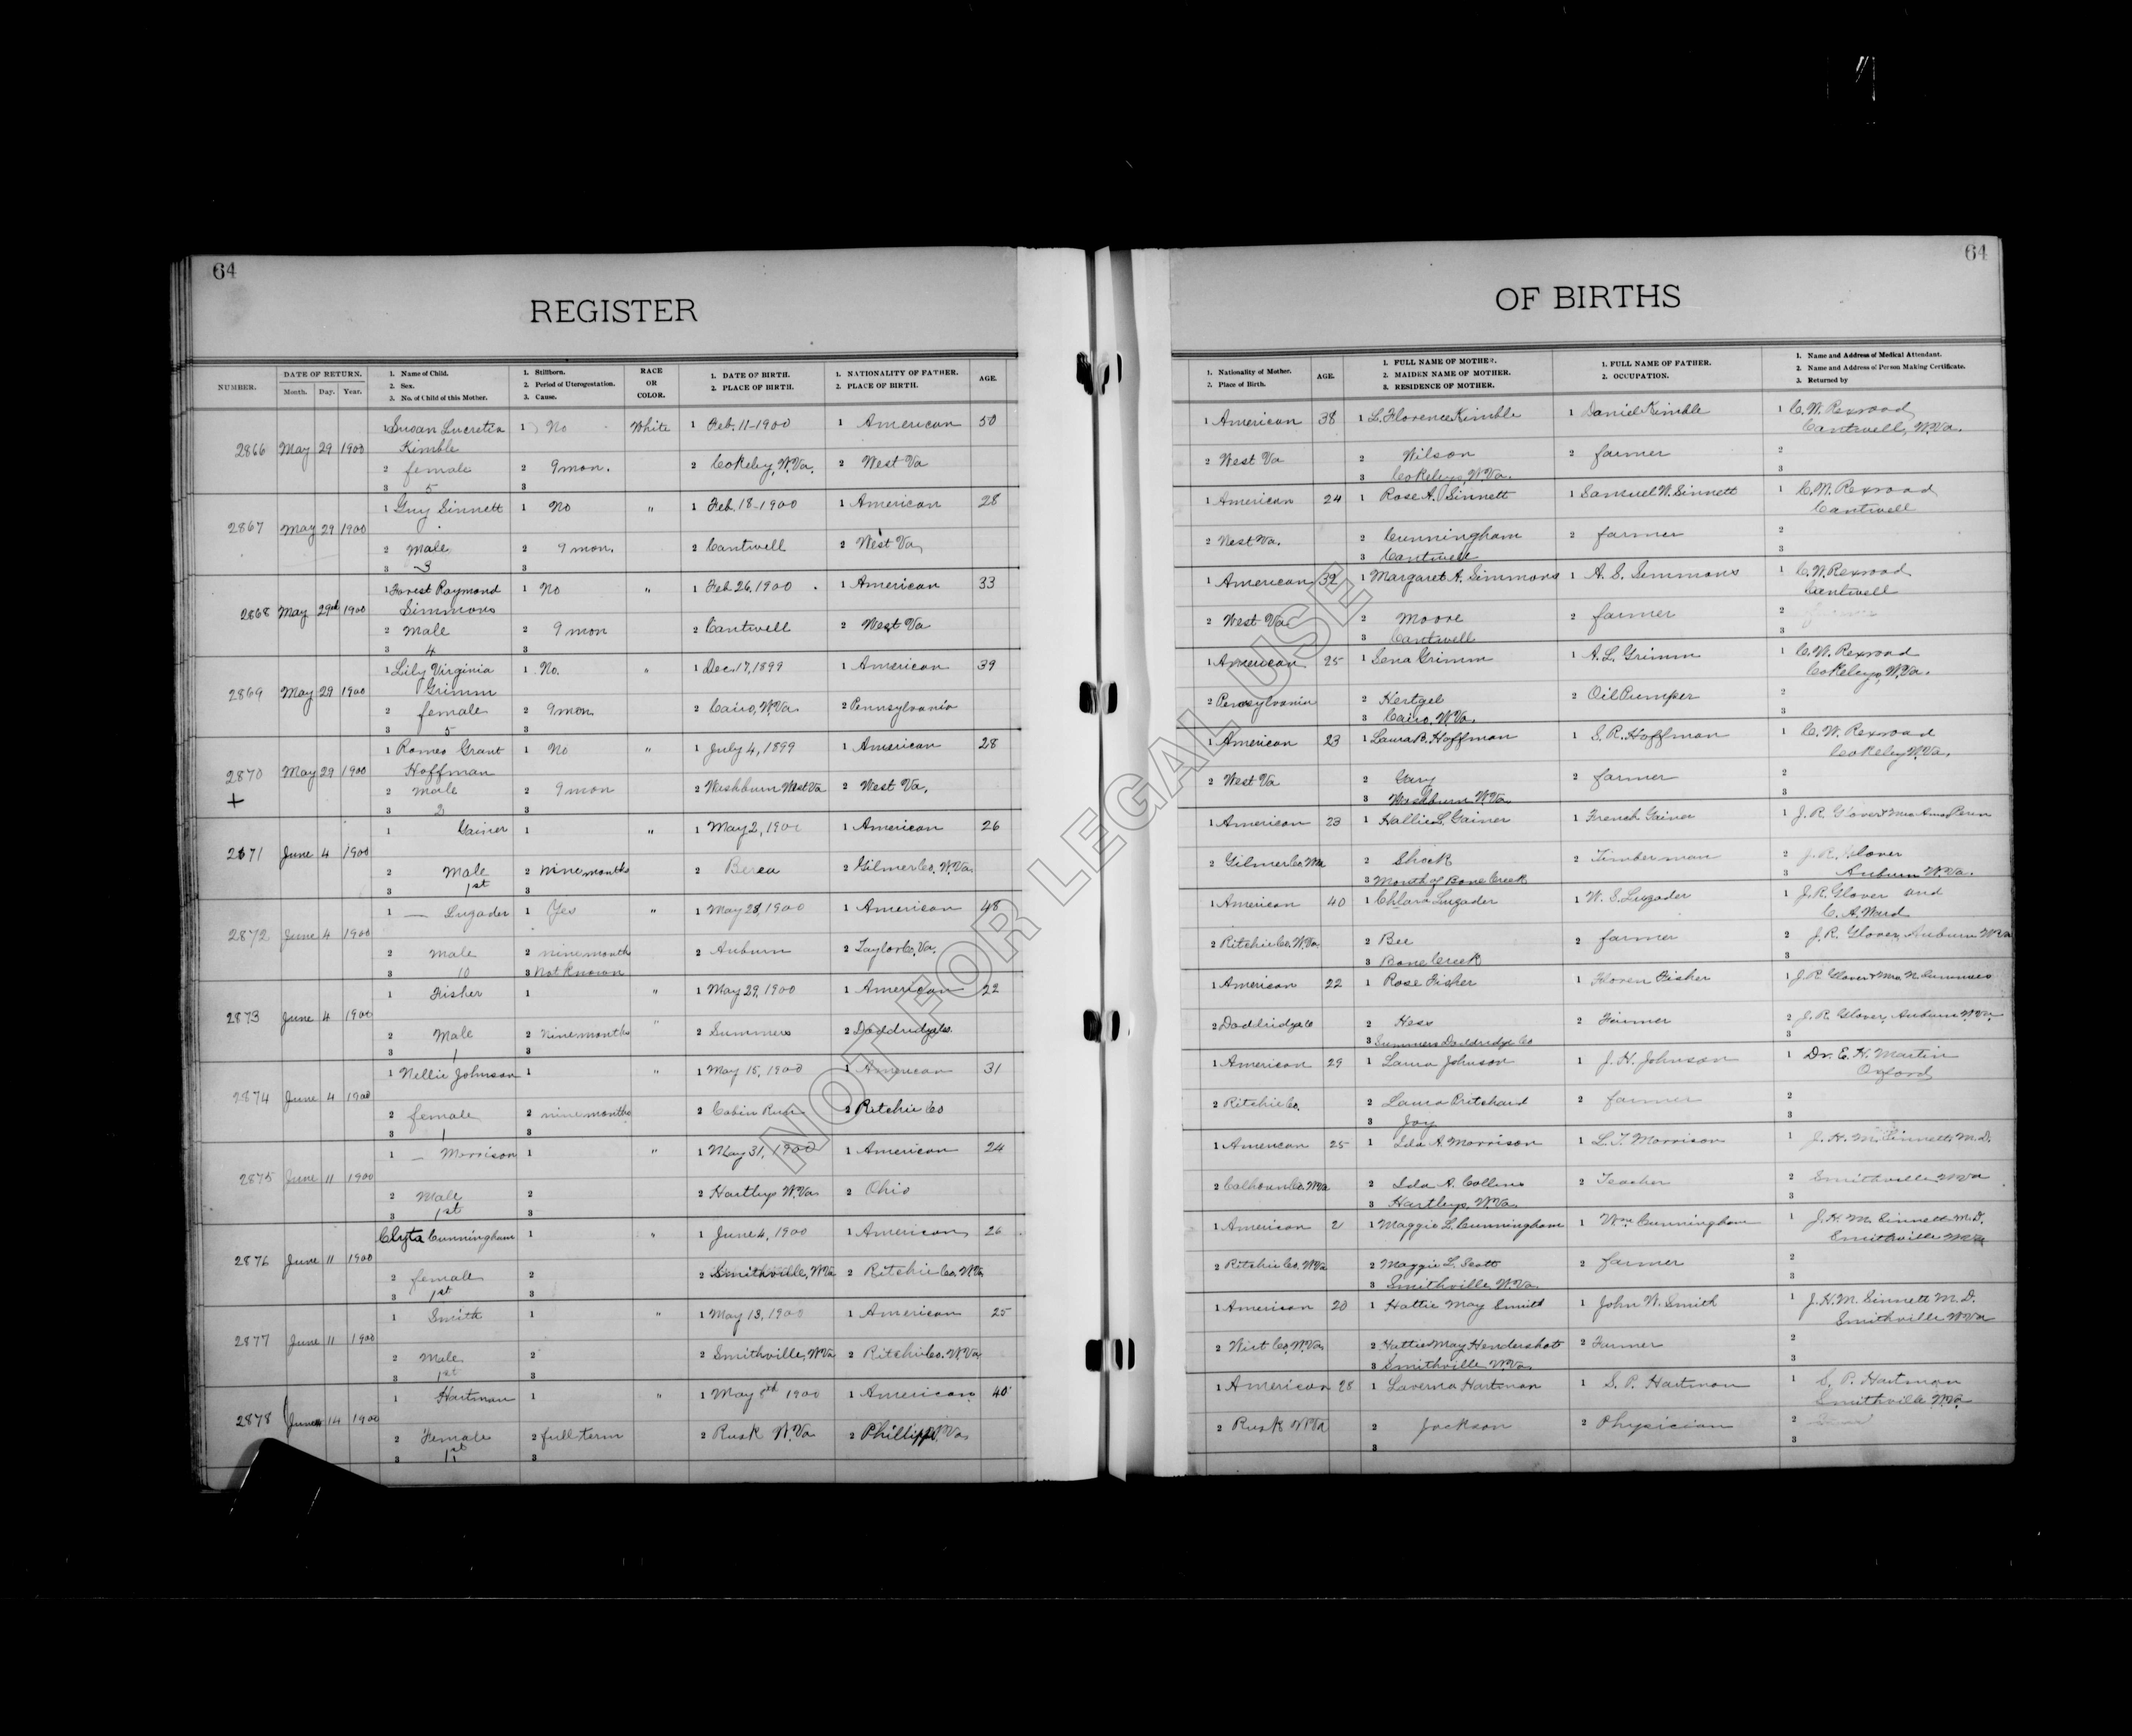 64
REGISTER
NUMBER.
DATE OF RETURN.
Month. Day. Year.
1. Name of Child.
2. Sex.
3. No. of Child of this Mother.
1. Stillborn.
2. Period of Uterogestation.
3. Cause.
RACE
OR
COLOR.
1. DATE OF BIRTH.
2. PLACE OF BIRTH.
1. NATIONALITY OF FATHER.
2. PLACE OF BIRTH.
AGE.
2866 May 29 1900 1 Susan Lucretia 1 No White 1 Feb. 11-1900 1 American 50
Kimble
2 female 2 9 mon. 2 Cokeley, W.Va. 2 West Va
3 5 3
2867 May 29 1900 1 Guy Sinnett 1 No " 1 Feb. 18-1900 1 American 28
2 Male 2 9 mon. 2 Cantwell 2 West Va
3 3 3
2868 May 29 1900 1 Forest Raymond 1 No " 1 Feb 26, 1900 1 American 33
Simmons
2 Male 2 9 mon 2 Cantwell 2 West Va
3 4 3
2869 May 29 1900 1 Lily Virginia 1 No. " 1 Dec. 17, 1899 1 American 39
Grimm
2 female 2 9 mon 2 Cairo, W.Va. 2 Pennsylvania
3 5 3
2870 May 29 1900 1 Romeo Grant 1 No " 1 July 4, 1899 1 American 28
Hoffman
+ 2 male 2 9 mon 2 Washburn West Va 2 West Va.
3 2 3
2871 June 4 1900 1 Gainer 1 " 1 May 2, 1900 1 American 26
2 Male 2 nine months 2 Berea 2 Gilmer Co. W.Va.
3 1st 3
2872 June 4 1900 1 — Lugader 1 Yes " 1 May 28, 1900 1 American 48
2 Male 2 nine month 2 Auburn 2 Taylor Co, Va.
3 10 3 Not Known
2873 June 4 1900 1 Fisher 1 " 1 May 29, 1900 1 American 22
2 Male 2 nine months 2 Summers 2 Doddridge Co.
3 1 3
2874 June 4 1900 1 Nellie Johnson 1 " 1 May 15, 1900 1 American 31
2 female 2 nine months 2 Cabin Run 2 Ritchie Co
3 1 3
2875 June 11 1900 1 — Morrison 1 " 1 May 31, 1900 1 American 24
2 Male 2 2 Hartley W.Va 2 Ohio
3 1st 3
2876 June 11 1900 Clyta Cunningham 1 " 1 June 4, 1900 1 American 26
2 female 2 2 Smithville, W.Va 2 Ritchie Co. W.Va
3 1st 3
2877 June 11 1900 1 Smith 1 " 1 May 13, 1900 1 American 25
2 Male 2 2 Smithville, W.Va 2 Ritchie Co. W.Va
3 1st 3
2878 June 14 1900 1 Hartman 1 " 1 May 1900 1 American 40
2 Female 2 full term 2 Rusk W.Va 2 Phillippi W.Va
3 1st 3
64
OF BIRTHS
1. Nationality of Mother.
2. Place of Birth.
AGE.
1. FULL NAME OF MOTHER.
2. MAIDEN NAME OF MOTHER.
3. RESIDENCE OF MOTHER.
1. FULL NAME OF FATHER.
2. OCCUPATION.
1. Name and Address of Medical Attendant.
2. Name and Address of Person Making Certificate.
3. Returned by
1 American 38 1 L. Florence Kimble 1 Daniel Kimble 1 C. W. Rexroad
Cantwell, W.Va.
2 West Va 2 Wilson 2 farmer 2
3 Cokeleys, W.Va. 3
1 American 24 1 Rose A. Sinnett 1 Samuel W. Sinnett 1 C. W. Rexroad
Cantwell
2 West Va. 2 Cunningham 2 farmer 2
3 Cantwell 3
1 American 32 1 Margaret A. Simmons 1 A. S. Simmons 1 C. W. Rexroad
Cantwell
2 West Va 2 Moore 2 farmer 2
3 Cantwell 3
1 American 25 1 Lena Grimm 1 A. L. Grimm 1 C. W. Rexroad
Cokeleys, W.Va.
2 Pensylvania 2 Hertgel 2 Oil Pumper 2
3 Cairo, W.Va. 3
1 American 23 1 Laura B. Hoffman 1 S. R. Hoffman 1 C. W. Rexroad
Cokeley W.Va.
2 West Va 2 Gary 2 farmer 2
3 Washburn W.Va 3
1 American 23 1 Hallie L. Gainer 1 French Gainer 1 J. R. Glover & Mrs
2 Gilmer Co. W.Va 2 Shock 2 Timber man 2 J. R. Glover
3 Mouth of Bone Creek 3 Auburn W.Va.
1 American 40 1 Chlara Lugader 1 W. S. Lugader 1 J. R. Glover and
C. A. Ward
2 Ritchie Co. W.Va 2 Bee 2 farmer 2 J. R. Glover, Auburn W.Va
3 Bone Creek 3
1 American 22 1 Rose Fisher 1 Fisher 1 J. R. Glover & Mrs N Summers
2 Doddridge Co 2 Hess 2 Farmer 2 J. R. Glover, Auburn W.Va.
3 Summers Doddridge Co 3
1 American 29 1 Laura Johnson 1 J. H. Johnson 1 Dr. E. H. Martin
Oxford
2 Ritchie Co. 2 Laura Pritchard 2 farmer 2
3 Joy 3
1 American 25 1 Ida A. Morrison 1 L. T. Morrison 1 J. H. M. Sinnett, M.D.
2 Calhoun Co. W.Va 2 Ida A. Collins 2 Teacher 2 Smithville W.Va
3 Hartleys, W.Va. 3
1 American 2 1 Maggie L. Cunningham 1 Wm Cunningham 1 J. H. M. Sinnett M.D.
Smithville W.Va
2 Ritchie Co. W.Va 2 Maggie L. Scott 2 farmer 2
3 Smithville W.Va. 3
1 American 20 1 Hattie May Smith 1 John W. Smith 1 J. H. M. Sinnett M.D.
Smithville W.Va
2 Wirt Co, W.Va. 2 Hattie May Hendershot 2 Farmer 2
3 Smithville W.Va. 3
1 American 28 1 Laverna Hartman 1 S. P. Hartman 1 S. P. Hartman
Smithville W.Va.
2 Rusk W.Va 2 Jackson 2 Physician 2
3 3
NOT FOR LEGAL USE